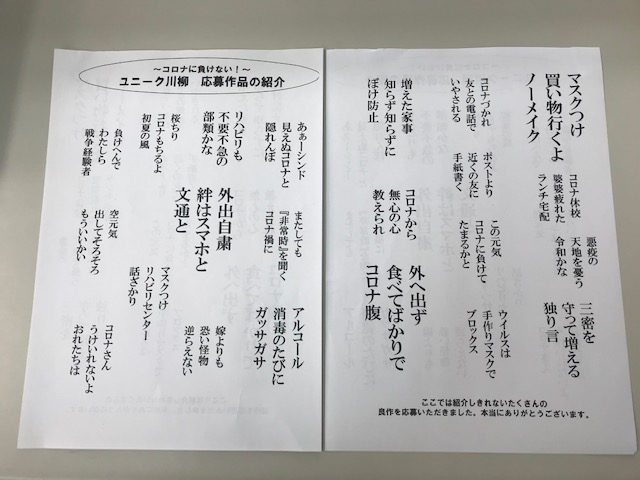 ～コロナに負けない！～
ユニーク川柳　応募作品の紹介
あぁーシンド
見えぬコロナと
隠れんぼ
リハビリも
不要不急の
部類かな
桜ちり
コロナもちるよ
初夏の風
負けへんで
わたしら
戦争経験者
またしても
『非常時』を聞く
コロナ禍に
外出自粛
絆はスマホと
文通と
空元気
出してそろそろ
もういいかい
アルコール
消毒のたびに
ガッサガサ
嫁よりも
恐い怪物
逆らえない
マスクつけ
リハビリセンター
話ざかり
コロナさん
うけいれないよ
おれたちは
マスクつけ
買い物行くよ
ノーメイク
コロナづかれ
友との電話で
いやされる
増えた家事
知らず知らずに
ぼけ防止
コロナ休校
婆婆疲れた
ランチ宅配
ポストより
近くの友に
手紙書く
コロナから
無心の心
教えられ
悪疫の
天地を憂う
令和かな
この元気
コロナに負けて
たまるかと
三密を
守って増える
独り言
ウイルスは
手作りマスクで
ブロックス
外へ出ず
食べてばかりで
コロナ腹
ここでは紹介しきれないたくさんの
良作を応募いただきました。本当にありがとうございます。